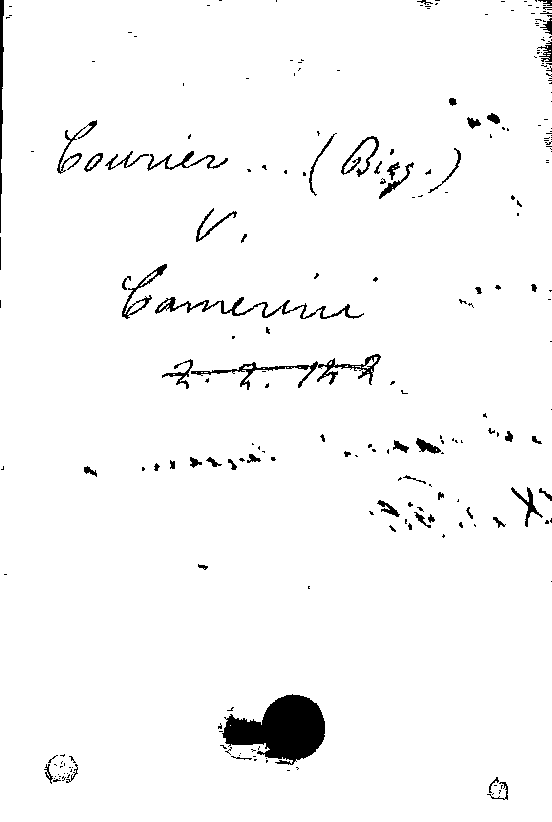 Courier .... (Biog.)
V.
Camerini
2. 2. 142.